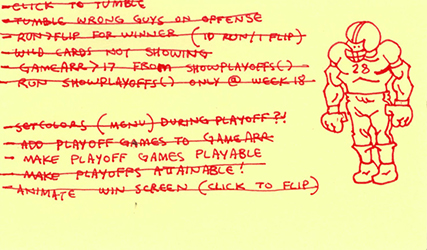 - CLICK TO TUMBLE
- TUMBLE WRONG GUYS ON OFFENSE
- RUN>FLIP FOR WINNER (ID RUN/1 FLIP)
- WILD CARDS NOT SHOWING
- GAMEARR>17 FROM SHOWPLAYOFFS()
- RUN SHOWPLAYOFFS() ONLY @ WEEK 18
- SETCOLORS (MENU) DURING PLAYOFF?!
- ADD PLAYOFF GAMES TO GAMEARR
- MAKE PLAYOFF GAMES PLAYABLE
- MAKE PLAYOFFS ATTAINABLE!
- ANIMATE WIN SCREEN (CLICK TO FLIP)
22